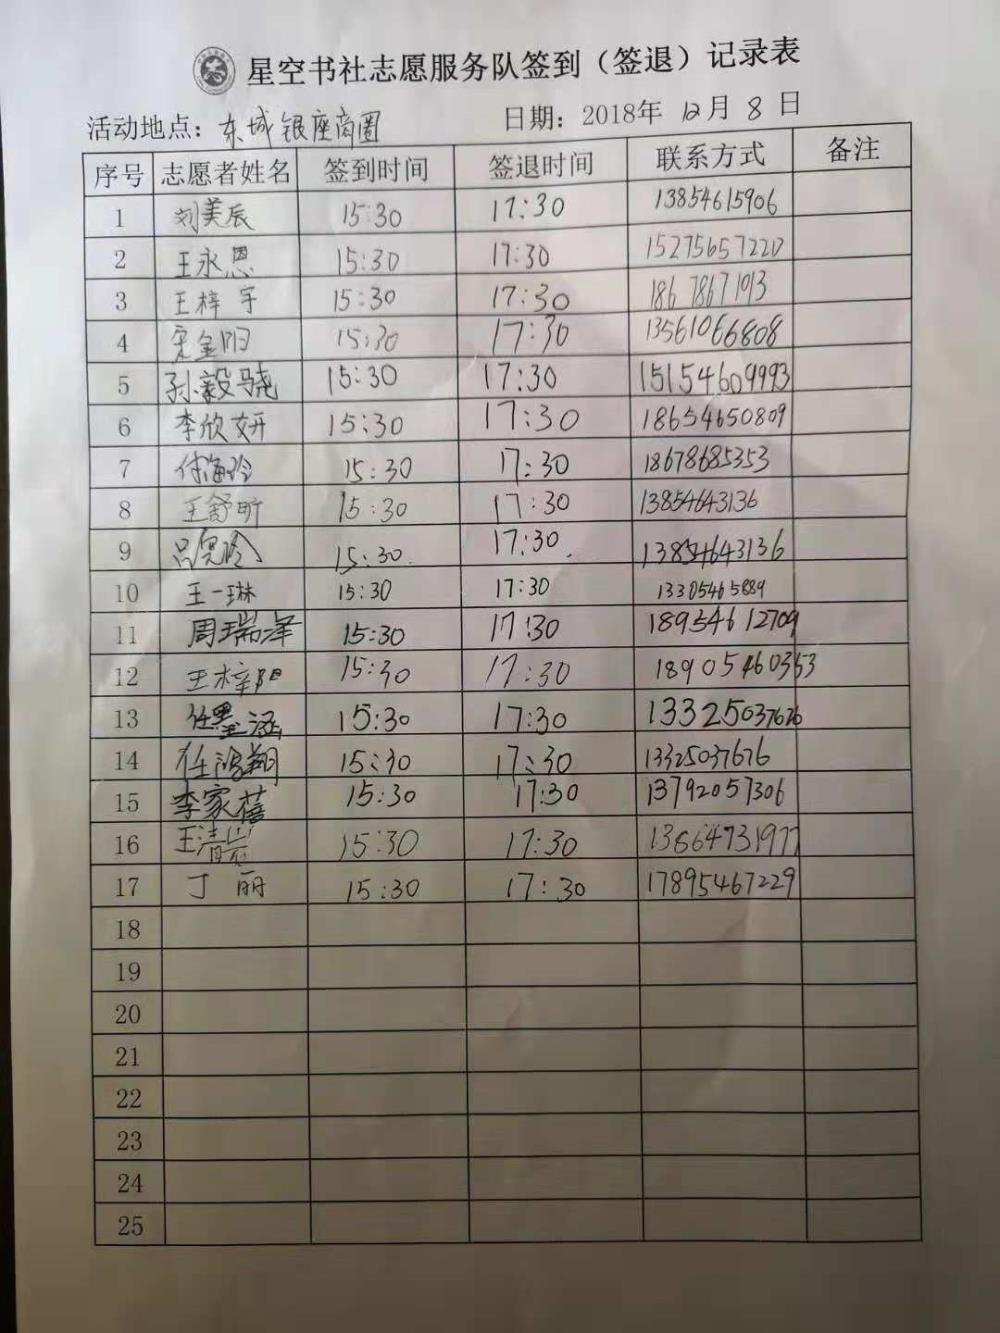 星空书社志愿服务队签到（签退）记录表
活动地点：东城银座商圈 日期：2018年 12月 8 日
序号 志愿者姓名 签到时间 签退时间 联系方式 备注
1 刘美辰 15:30 17:30 13854615906
2 王永恩 15:30 17:30 15275657220
3 王梓宇 15:30 17:30 18678671913
4 宋金阳 15:30 17:30 13561066808
5 孙毅骁 15:30 17:30 15154609993
6 李欣妍 15:30 17:30 18654650809
7 付海玲 15:30 17:30 18678685353
8 王舒昕 15:30 17:30 13854643136
9 15:30 17:30 13854643136
10 王一琳 15:30 17:30 13305465889
11 周瑞泽 15:30 17:30 18954612709
12 王梓阳 15:30 17:30 18905460353
13 任墨涵 15:30 17:30 13325037676
14 任鸿翔 15:30 17:30 13325037676
15 李家蓓 15:30 17:30 13792057306
16 王清岩 15:30 17:30 13864731977
17 丁丽 15:30 17:30 17895467229
18
19
20
21
22
23
24
25